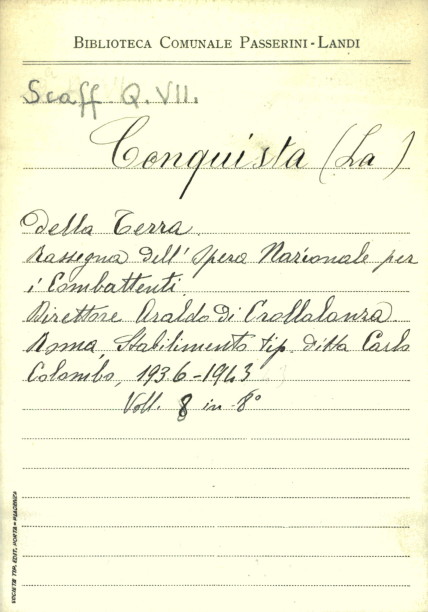 BIBLIOTECA COMUNALE PASSERINI-LANDI
Scaff Q.VII.
Conquista (La)
della Terra.
Rassegna dell'Opera Nazionale per
i Combattenti.
Direttore Araldo di Crollalanza.
Roma, Stabilimento tip. ditta Carlo
Colombo, 1936-1943
Voll. 8 in-8°
SOCIETÀ TIP. EDIT. PORTA - PIACENZA